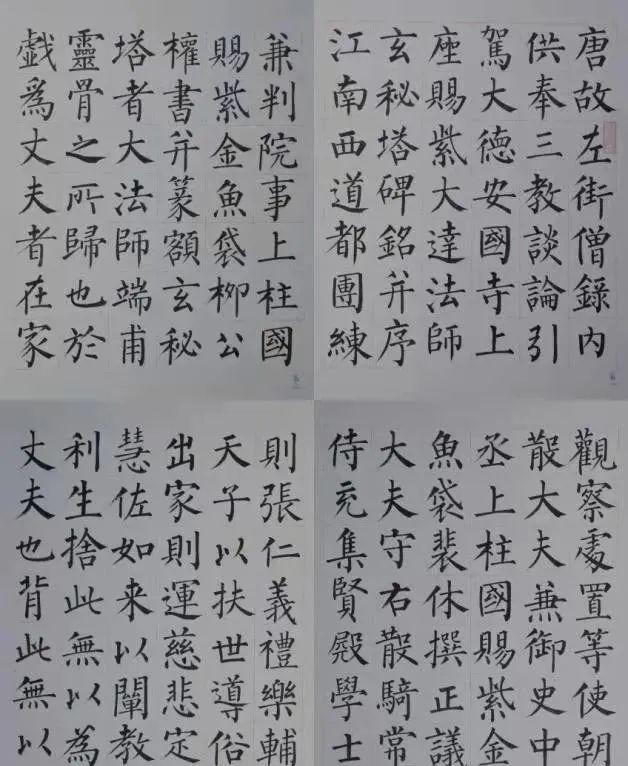 唐故左街僧錄内
供奉三教談論引
駕大德安國寺上
座賜紫大達法師
玄秘塔碑銘并序
江南西道都團練
觀察處置等使朝
散大夫兼御史中
丞上柱國賜紫金
魚袋裴休撰正議
大夫守右散騎常
侍充集賢殿學士
兼判院事上柱國
賜紫金魚袋柳公
權書并篆額玄秘
塔者大法師端甫
靈骨之所歸也於
戲爲丈夫者在家
則張仁義禮樂輔
天子以扶世導俗
出家則運慈悲定
慧佐如来以闡教
利生捨此無以為
丈夫也背此無以